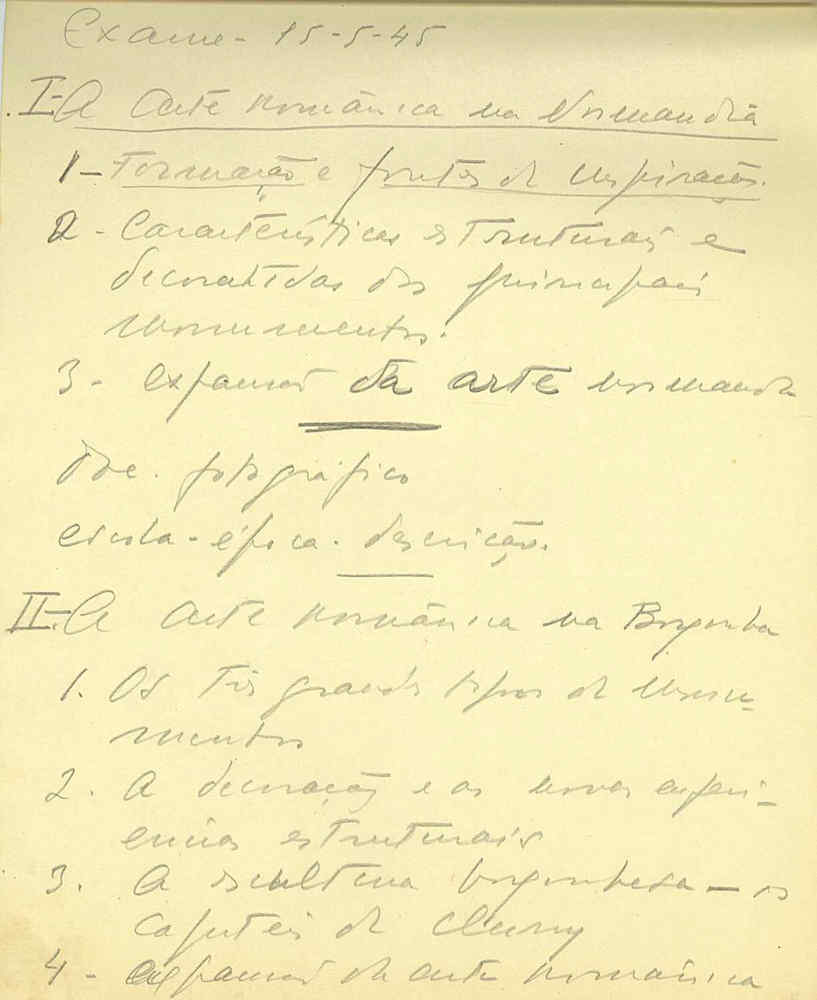 Exame - 15-5-45
I-A Arte Românica na Normandia
1- Formação e fontes de inspiração.
2- Características estruturais e
decorativas dos principais
monumentos.
3- expansão da arte normanda
doc. fotográfico
escola - época - descrição.
II-A Arte Românica na Borgonha
1. Os três grandes tipos de monu-
mentos
2. A decoração e as novas experi-
ências estruturais
3. A escultura borgonhesa - os
capitéis de Cluny
4- expansão da arte românica